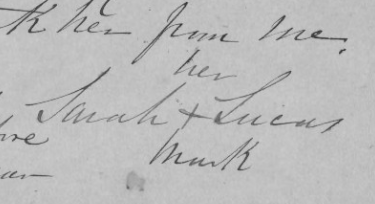 her from me.
her
Sarah + Lucas
mark